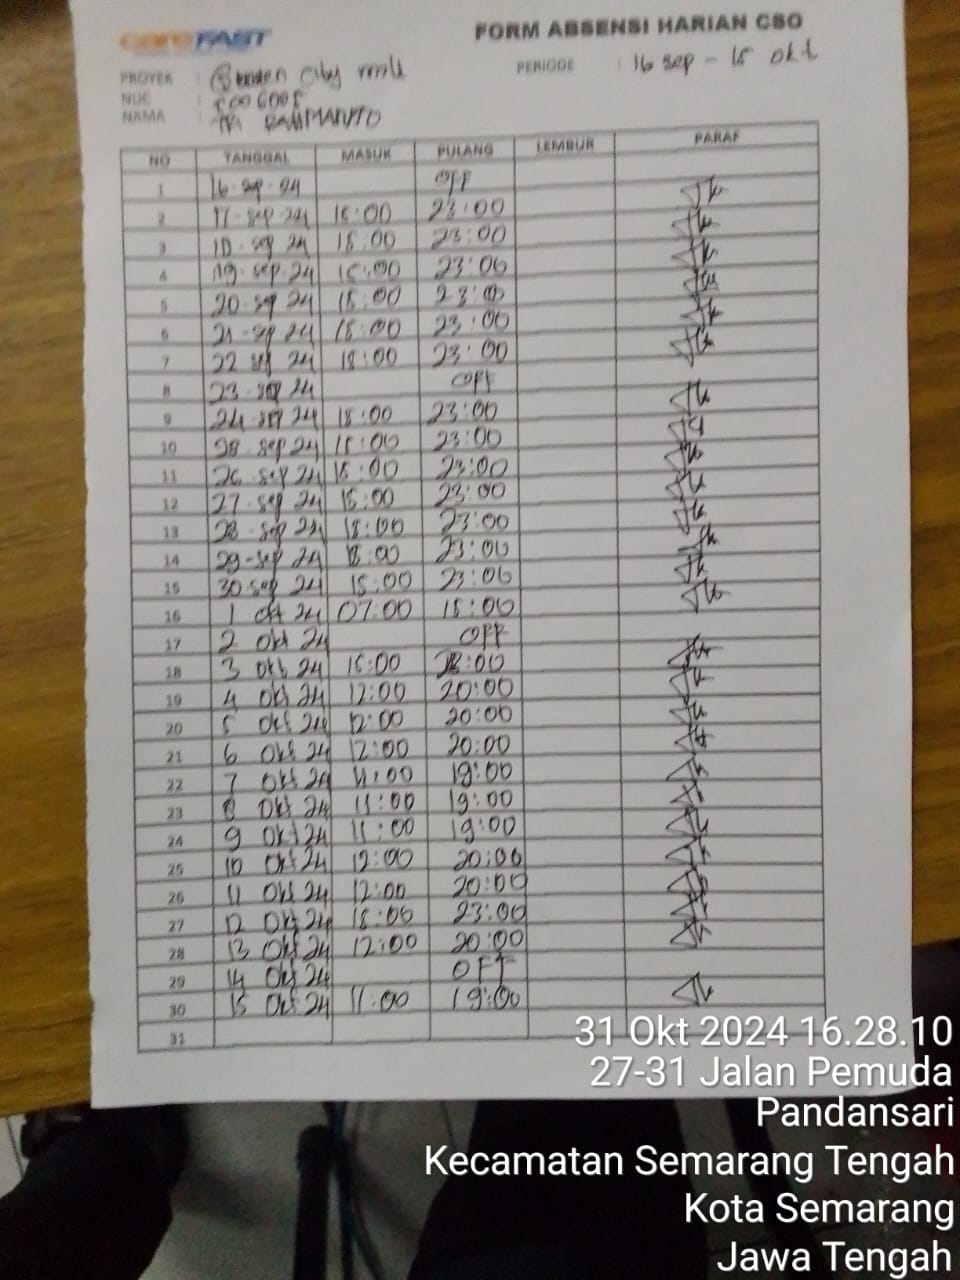 careFAST
FORM ABSENSI HARIAN CSO
PROYEK : city mall
PERIODE : 16 sep - 15 okt
NUC :
NAMA : TRI
NO TANGGAL MASUK PULANG LEMBUR PARAF
1 16 sep 24 OFF
2 17 sep 24 15:00 23:00
3 18 sep 24 15:00 23:00
4 19 sep 24 15:00 23:00
5 20 sep 24 15:00 23:00
6 21 sep 24 15:00 23:00
7 22 sep 24 15:00 23:00
8 23 sep 24 OFF
9 24 sep 24 15:00 23:00
10 25 sep 24 15:00 23:00
11 26 sep 24 15:00 23:00
12 27 sep 24 15:00 23:00
13 28 sep 24 15:00 23:00
14 29 sep 24 15:00 23:00
15 30 sep 24 15:00 23:00
16 1 okt 24 07:00 15:00
17 2 okt 24 OFF
18 3 okt 24 15:00
19 4 okt 24 12:00 20:00
20 5 okt 24 12:00 20:00
21 6 okt 24 12:00 20:00
22 7 okt 24 11:00 19:00
23 8 okt 24 11:00 19:00
24 9 okt 24 11:00 19:00
25 10 okt 24 12:00 20:00
26 11 okt 24 12:00 20:00
27 12 okt 24 15:00 23:00
28 13 okt 24 12:00 20:00
29 14 okt 24 OFF
30 15 okt 24 11:00 19:00
31
31 Okt 2024 16.28.10
27-31 Jalan Pemuda
Pandansari
Kecamatan Semarang Tengah
Kota Semarang
Jawa Tengah